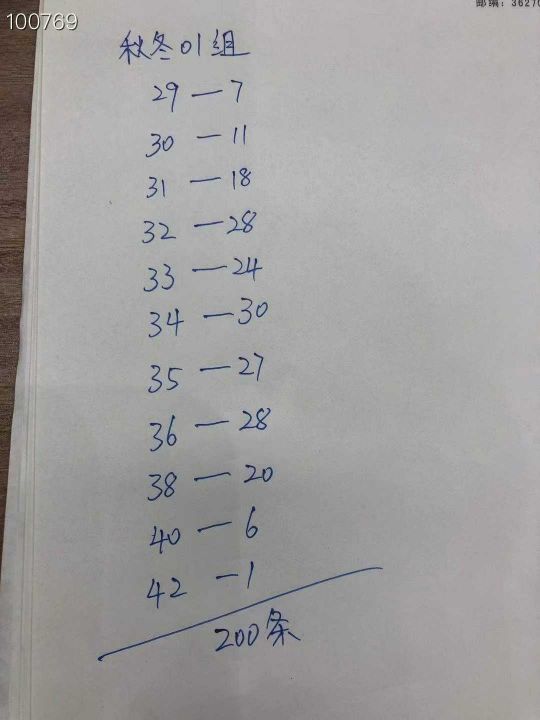 邮编：36270
100769
秋冬01组
29—7
30—11
31—18
32—28
33—24
34—30
35—27
36—28
38—20
40—6
42—1
200条